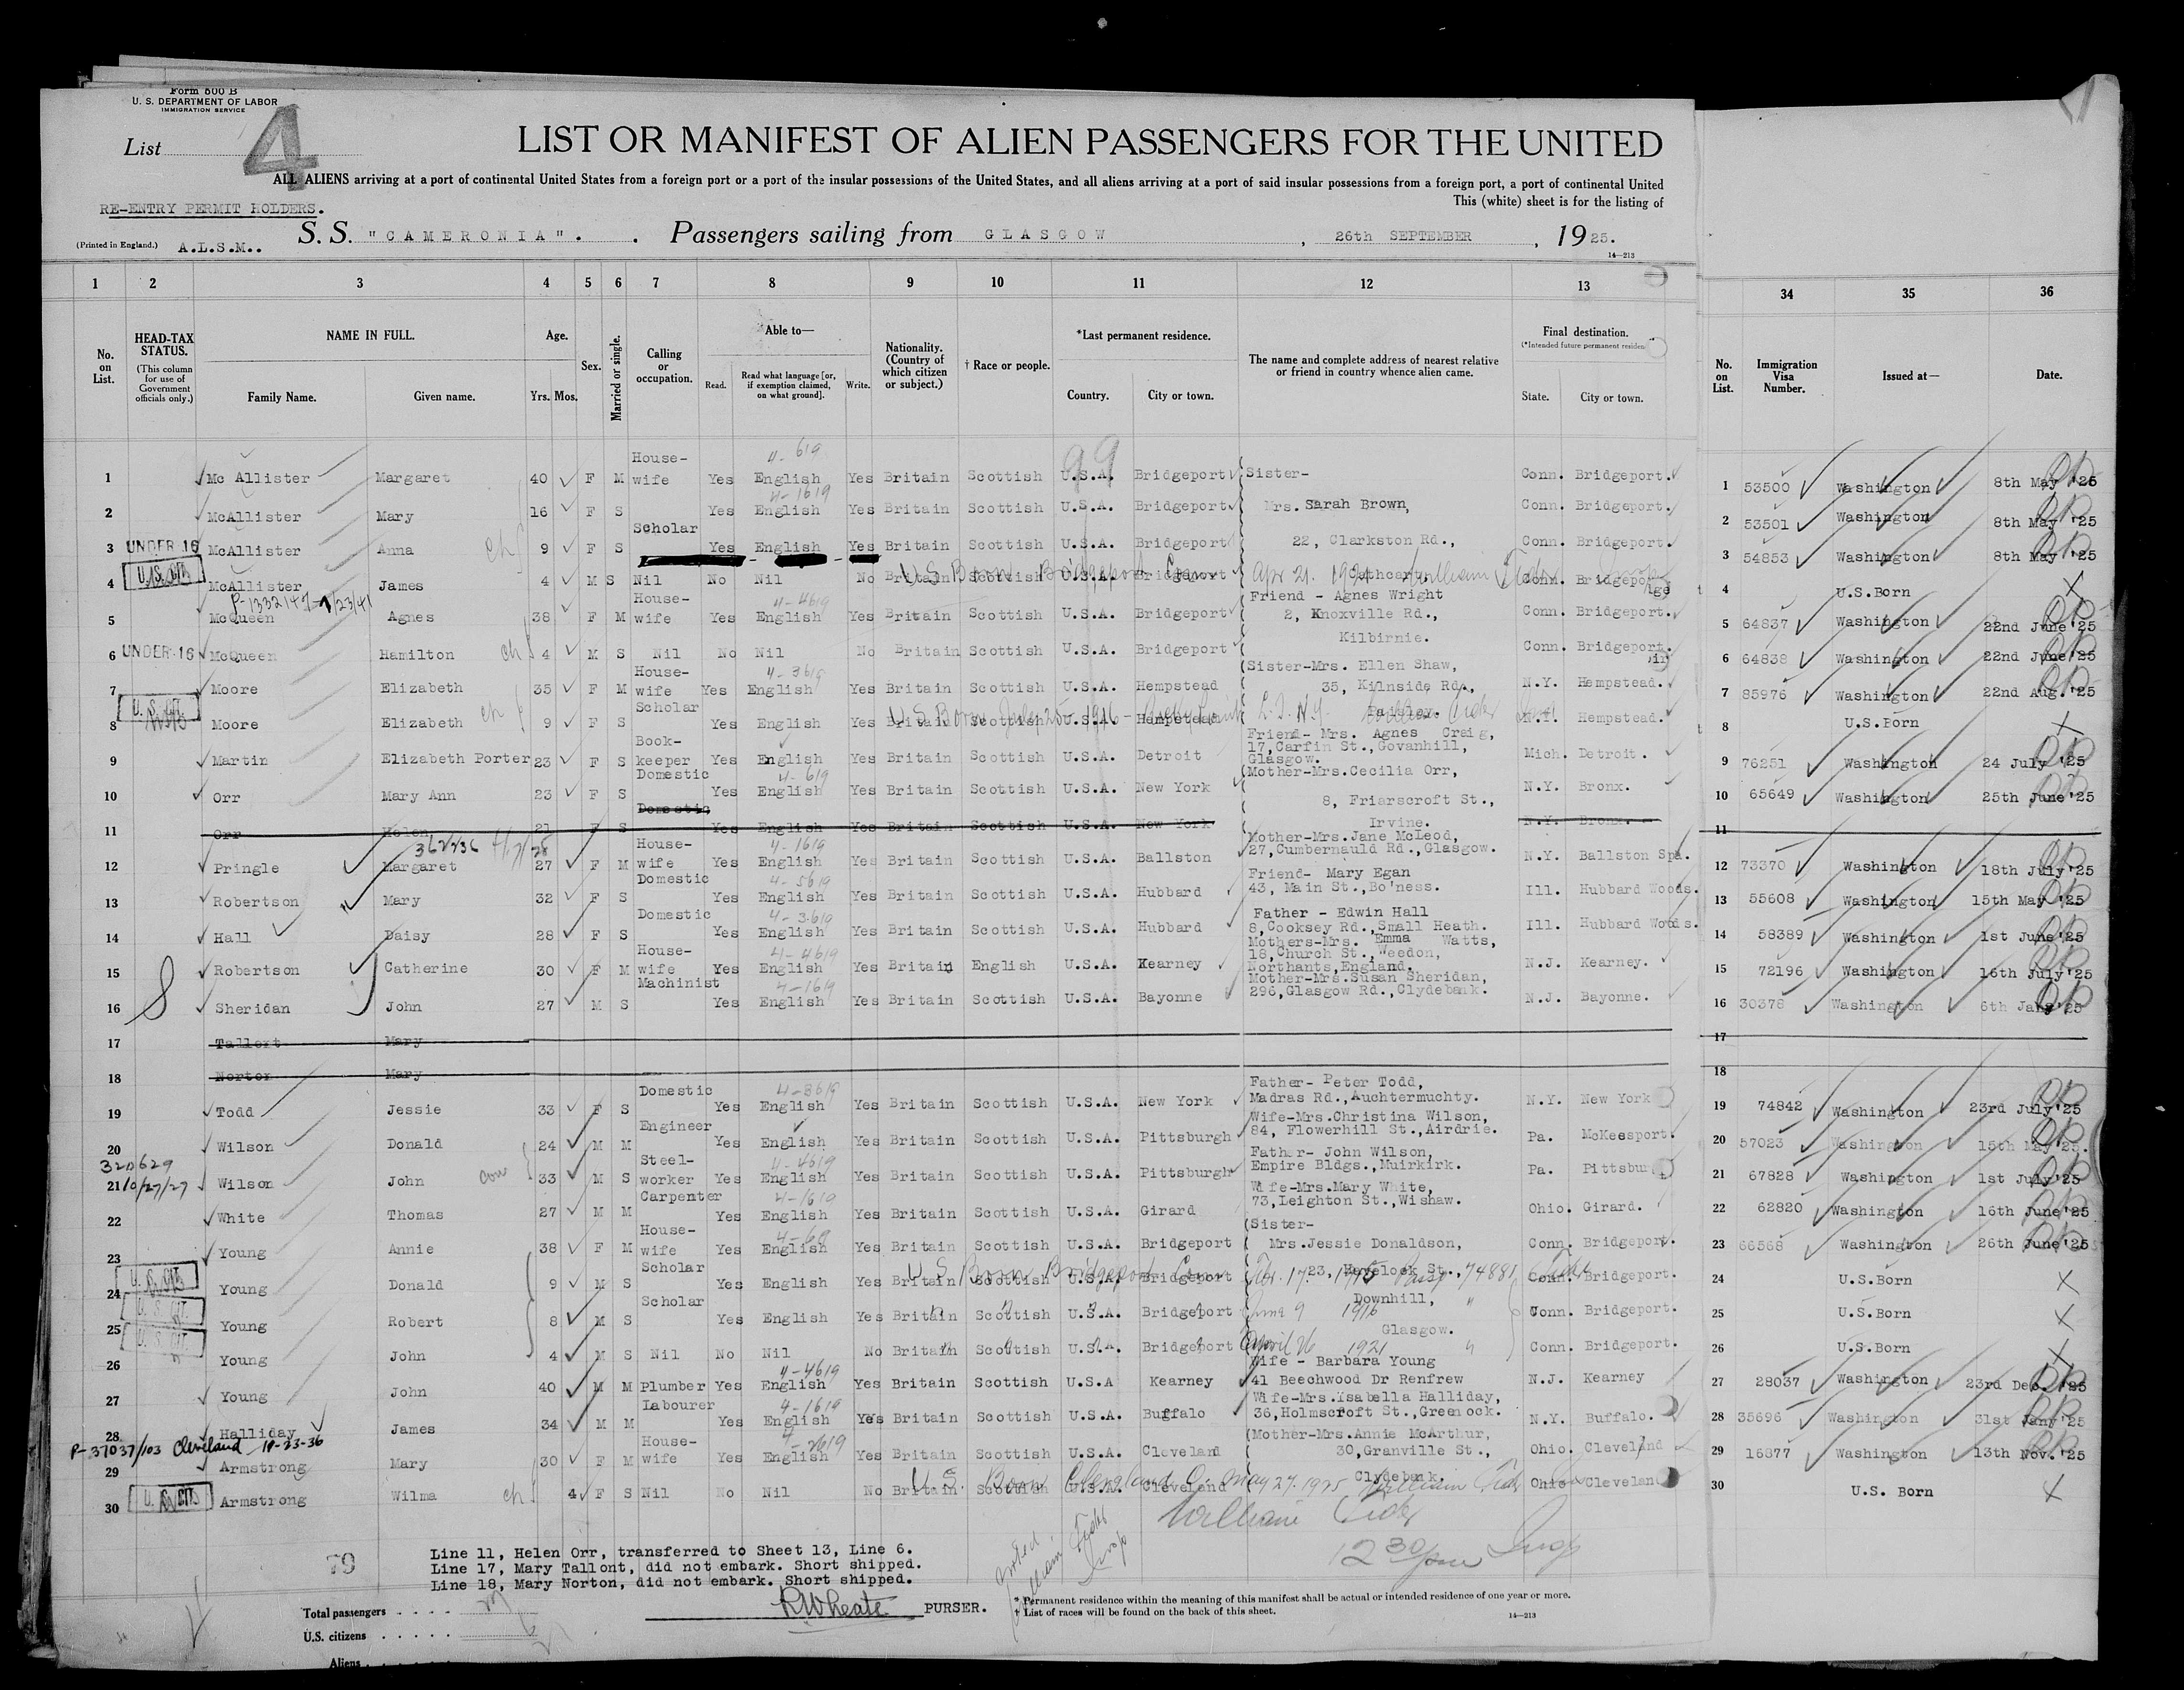 Form 500 B
U. S. DEPARTMENT OF LABOR
IMMIGRATION SERVICE
List 4
LIST OR MANIFEST OF ALIEN PASSENGERS FOR THE UNITED
ALL ALIENS arriving at a port of continental United States from a foreign port or a port of the insular possessions of the United States, and all aliens arriving at a port of said insular possessions from a foreign port, a port of continental United
This (white) sheet is for the listing of
RE-ENTRY PERMIT HOLDERS.
(Printed in England.) A.L.S.M.. S. S. "CAMERONIA". Passengers sailing from GLASGOW, 26th SEPTEMBER, 1925.
14—213
1 2 3 4 5 6 7 8 9 10 11 12 13 34 35 36
No. on List. HEAD-TAX STATUS. (This column for use of Government officials only.) NAME IN FULL. Family Name. Given name. Age. Yrs. Mos. Sex. Married or single. Calling or occupation. Able to— Read. Read what language [or, if exemption claimed, on what ground]. Write. Nationality. (Country of which citizen or subject.) † Race or people. *Last permanent residence. Country. City or town. The name and complete address of nearest relative or friend in country whence alien came. Final destination. (*Intended future permanent residence) State. City or town. No. on List. Immigration Visa Number. Issued at— Date.
1 Mc Allister Margaret 40 F M House-wife Yes English Yes Britain Scottish U.S.A. Bridgeport Sister- Conn. Bridgeport. 1 53500 Washington 8th May '25
2 McAllister Mary 16 F S Yes English Yes Britain Scottish U.S.A. Bridgeport Mrs. Sarah Brown, Conn. Bridgeport. 2 53501 Washington 8th May '25
3 UNDER 16 McAllister Anna ch 9 F S Scholar Yes English Yes Britain Scottish U.S.A. Bridgeport 22, Clarkston Rd., Conn. Bridgeport. 3 54853 Washington 8th May '25
4 U.S. CIT. McAllister James 4 M S Nil No Nil No Britain Scottish U.S.A. Bridgeport Cathcart. Conn. Bridgeport 4 U.S.Born X
U S Born Bridgeport Conn Apr 21. 1921 William
P-1332147-
5 McQueen Agnes 38 F M House-wife Yes English Yes Britain Scottish U.S.A. Bridgeport Friend - Agnes Wright 2, Knoxville Rd., Conn. Bridgeport. 5 64837 Washington 22nd June '25
6 UNDER 16 McQueen Hamilton ch 4 M S Nil No Nil No Britain Scottish U.S.A. Bridgeport Kilbirnie. Conn. Bridgeport. 6 64838 Washington 22nd June '25
7 Moore Elizabeth 35 F M House-wife Yes English Yes Britain Scottish U.S.A. Hempstead Sister-Mrs. Ellen Shaw, 35, Kilnside Rd., N.Y. Hempstead. 7 85976 Washington 22nd Aug. '25
8 U. S. CIT. Moore Elizabeth ch 9 F S Scholar Yes English Yes Britain Scottish U.S.A. Hempstead Paisley. N.Y. Hempstead. 8 U.S.Born X
9 Martin Elizabeth Porter 23 F S Book-keeper Yes English Yes Britain Scottish U.S.A. Detroit Friend- Mrs. Agnes Craig, 17, Carfin St., Govanhill, Glasgow. Mich. Detroit. 9 76251 Washington 24 July '25
10 Orr Mary Ann 23 F S Domestic Yes English Yes Britain Scottish U.S.A. New York Mother-Mrs.Cecilia Orr, 8, Friarscroft St., N.Y. Bronx. 10 65649 Washington 25th June '25
11 Orr Helen 21 F S Domestic Yes English Yes Britain Scottish U.S.A. New York Irvine. N.Y. Bronx. 11
12 Pringle Margaret 27 F M House-wife Yes English Yes Britain Scottish U.S.A. Ballston Mother-Mrs.Jane McLeod, 27, Cumbernauld Rd., Glasgow. N.Y. Ballston Spa. 12 73370 Washington 18th July '25
13 Robertson Mary 32 F S Domestic Yes English Yes Britain Scottish U.S.A. Hubbard Friend- Mary Egan 43, Main St., Bo'ness. Ill. Hubbard Woods. 13 55608 Washington 15th May '25
14 Hall Daisy 28 F S Domestic Yes English Yes Britain Scottish U.S.A. Hubbard Father - Edwin Hall 8, Cooksey Rd., Small Heath. Ill. Hubbard Woods. 14 58389 Washington 1st June '25
15 Robertson Catherine 30 F M House-wife Yes English Yes Britain English U.S.A. Kearney Mothers-Mrs. Emma Watts, 18, Church St., Weedon, Northants, England. N.J. Kearney. 15 72196 Washington 16th July '25
16 Sheridan John 27 M S Machinist Yes English Yes Britain Scottish U.S.A. Bayonne Mother-Mrs.Susan Sheridan, 296, Glasgow Rd., Clydebank. N.J. Bayonne. 16 30378 Washington 6th Jany '25
17 Tallont Mary 17
18 Norton Mary 18
19 Todd Jessie 33 F S Domestic Yes English Yes Britain Scottish U.S.A. New York Father- Peter Todd, Madras Rd., Auchtermuchty. N.Y. New York 19 74842 Washington 23rd July '25
20 Wilson Donald 24 M M Engineer Yes English Yes Britain Scottish U.S.A. Pittsburgh Wife-Mrs.Christina Wilson, 84, Flowerhill St., Airdrie. Pa. McKeesport. 20 57023 Washington 15th May '25.
320629
10/27/27
21 Wilson John 33 M S Steel-worker Yes English Yes Britain Scottish U.S.A. Pittsburgh Father- John Wilson, Empire Bldgs., Muirkirk. Pa. Pittsbur 21 67828 Washington 1st July '25
22 White Thomas 27 M M Carpenter Yes English Yes Britain Scottish U.S.A. Girard Wife-Mrs.Mary White, 73, Leighton St., Wishaw. Ohio. Girard. 22 62820 Washington 16th June '25
23 Young Annie 38 F M House-wife Yes English Yes Britain Scottish U.S.A. Bridgeport (Sister- Mrs.Jessie Donaldson, Conn. Bridgeport. 23 66568 Washington 26th June '25
24 U. S. CIT. Young Donald 9 M S Scholar Yes English Yes Britain Scottish U.S.A. Bridgeport 23, Havelock St., Conn. Bridgeport. 24 U.S.Born X
25 U. S. CIT. Young Robert 8 M S Scholar Yes English Yes Britain Scottish U.S.A. Bridgeport Downhill, June 9 1916 Conn. Bridgeport. 25 U.S.Born X
26 U. S. CIT. Young John 4 M S Nil No Nil No Britain Scottish U.S.A. Bridgeport Glasgow. April 26 1921 Conn. Bridgeport. 26 U.S.Born X
27 Young John 40 M M Plumber Yes English Yes Britain Scottish U.S.A Kearney Wife - Barbara Young 41 Beechwood Dr Renfrew N.J. Kearney 27 28037 Washington 23rd Dec. '25
28 Halliday James 34 M M Labourer Yes English Yes Britain Scottish U.S.A. Buffalo Wife-Mrs.Isabella Halliday, 36, Holmscroft St., Greenock. N.Y. Buffalo. 28 35696 Washington 31st Jany '25
P-37037/103 Cleveland 10-23-36
29 Armstrong Mary 30 F M House-wife Yes English Yes Britain Scottish U.S.A. Cleveland (Mother-Mrs.Annie McArthur, 30, Granville St., Ohio. Cleveland 29 16877 Washington 13th Nov. '25
30 U. S. CIT. Armstrong Wilma ch 4 F S Nil No Nil No Britain Scottish U.S.A. Cleveland Clydebank. Ohio Cleveland 30 U.S. Born X
79
Line 11, Helen Orr, transferred to Sheet 13, Line 6.
Line 17, Mary Tallont, did not embark. Short shipped.
Line 18, Mary Norton, did not embark. Short shipped.
12 30 pm
PURSER.
* Permanent residence within the meaning of this manifest shall be actual or intended residence of one year or more.
† List of races will be found on the back of this sheet.
14—213
Total passengers
U.S. citizens
Aliens